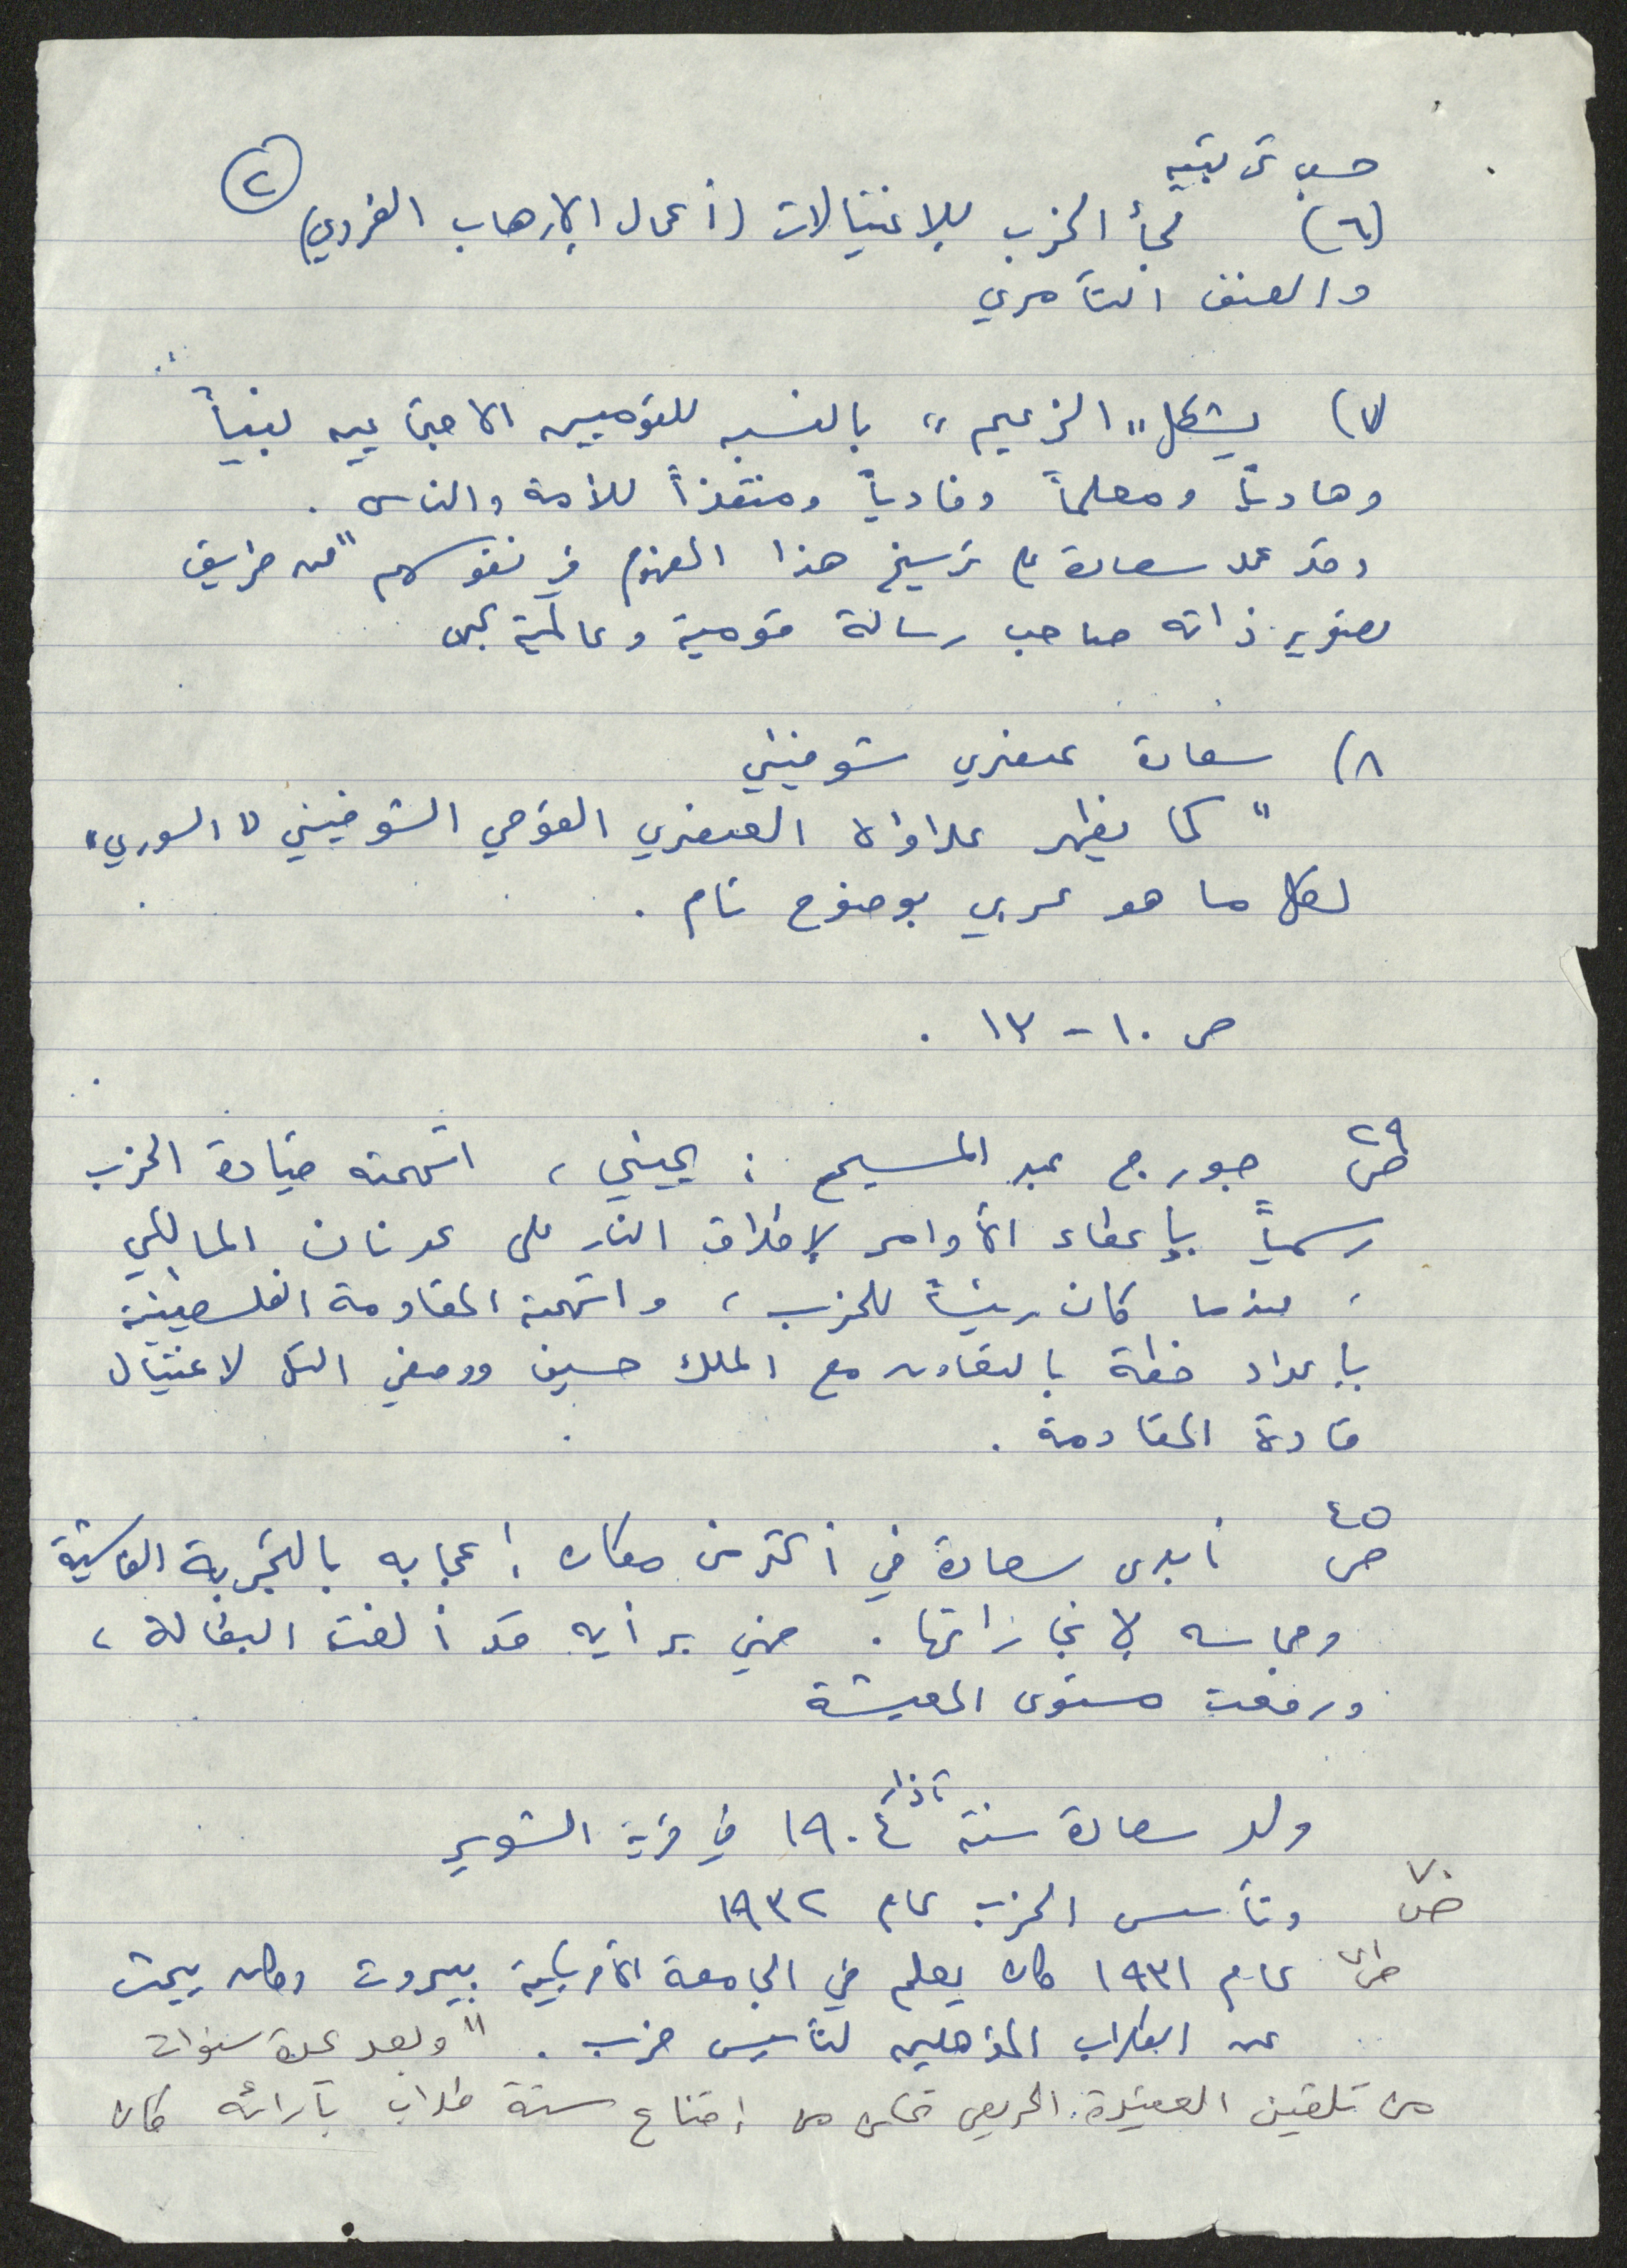 ٢
حسب تربيته
(٦) لجأ الحزب للاغتيالات (أعمال الإرهاب الفردي)
والعنف التآمري
٧) يشكل "الزعيم" بالنسبه للقوميين الاجتماعيين نبياً
وهادياً ومعلماً وفادياً ومنقذاً للأمة والناس .
وقد عمد سعادة على ترسيخ هذا المفهوم في نفوسهم "عن طريق
تصوير ذاته صاحب رسالة قومية وعالمية
٨) سعادة عنصري شوفيني
"كما يظهر عداؤه العنصري القومي الشوفيني "السوري"
لكل ما هو عربي بوضوح تام .
ص ١٠ - ١٣ .
ص ٢٩ جورج عبد المسيح : يميني ، اتهمته قيادة الحزب
رسمياً بإعطاء الأوامر لإطلاق النار على عدنان المالكي
، عندما كان رئيساً للحزب ، واتهمته المقاومة الفلسطينية
بإعداد خطة بالتعاون مع الملك حسين ووصفي التل لاغتيال
قادة المقاومة .
ص ٤٥ أبدى سعادة في أكثر من مكان إعجابه بالتجربة الفاشية
وحماسه لإنجازاتها . فهي برأيه قد ألغت البطالة ،
ورفعت مستوى المعيشة
ولد سعادة سنة آذار ١٩٠٤ في قرية الشوير
ص ٧٠ وتأسس الحزب عام ١٩٣٢
عام ١٩٣١ كان يعلم في الجامعة الأمريكية ببيروت وكان يبحث
عن الطلاب المؤهلين لتأسيس حزب . "وبعد عدة سنوات
من تلقين العقيدة الحريص تمكن من إقناع ستة طلاب بآرائه كان